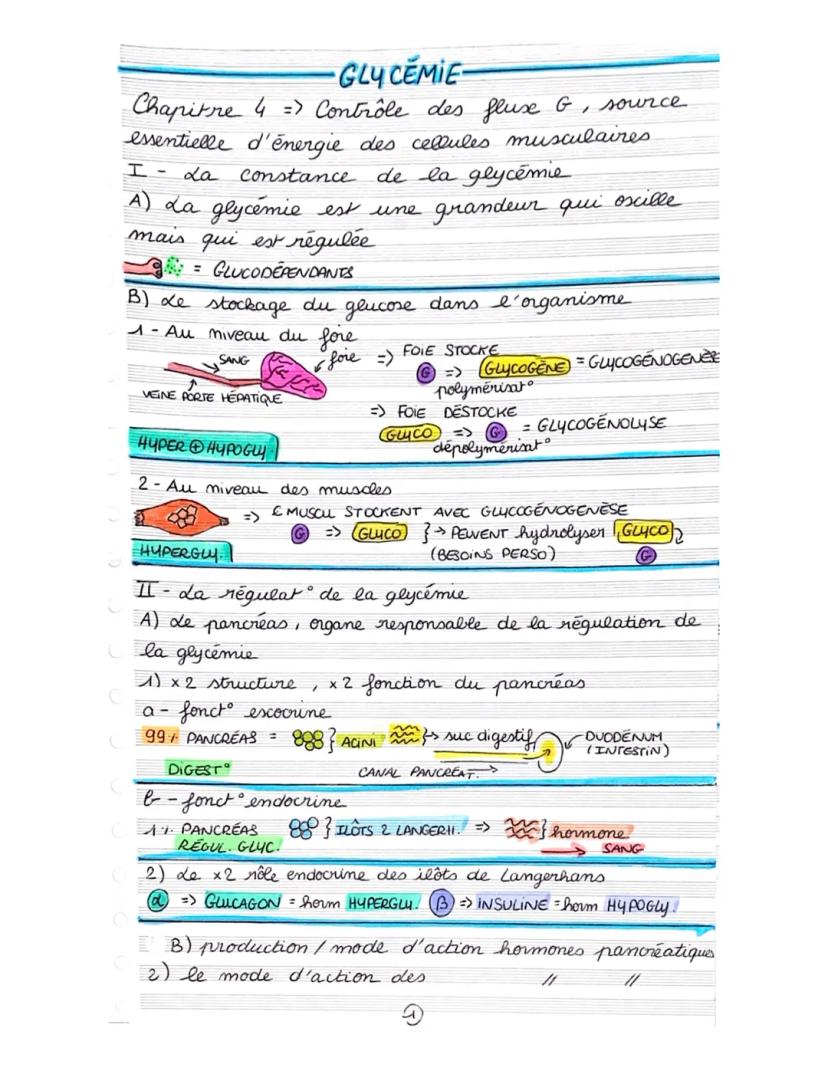 GLYCÉMIE
Chapitre 4 => Contrôle des fluxe G, source
essentielle d'énergie des cellules musculaires
I - La constance de la glycémie
A) La glycémie est une grandeur qui oscille
mais qui est régulée
= GLUCODÉPENDANTS
B) Le stockage du glucose dans l'organisme
1 - Au niveau du foie
SANG
foie => FOIE STOCKE
G => GLYCOGÈNE = GLYCOGÉNOGENÈSE
polymérisat°
VEINE PORTE HÉPATIQUE
=> FOIE DÉSTOCKE
GLYCO => G = GLYCOGÉNOLYSE
dépolymérisat°
HYPER ⊕ HYPOGLY.
2 - Au niveau des muscles
=> C MUSCU STOCKENT AVEC GLYCOGÉNOGENÈSE
G => GLUCO } → PEUVENT hydrolyser GLYCO
(BESOINS PERSO) G
HYPERGLY.
II - La régulat° de la glycémie
A) Le pancréas, organe responsable de la régulation de
la glycémie
1) x2 structure, x2 fonction du pancréas
a - fonct° escocrine
99% PANCRÉAS = } ACINI } → suc digestif DUODÉNUM
(INTESTIN)
DIGEST° CANAL PANCRÉAT. →
b - fonct° endocrine
1% PANCRÉAS } ILÔTS 2 LANGERH. => } hormone
RÉGUL. GLYC. → SANG
2) Le x2 rôle endocrine des ilôts de Langerhans
α => GLUCAGON = horm HYPERGLY. β => INSULINE = horm HYPOGLY.
B) production / mode d'action hormones pancréatiques
2) le mode d'action des // //
1